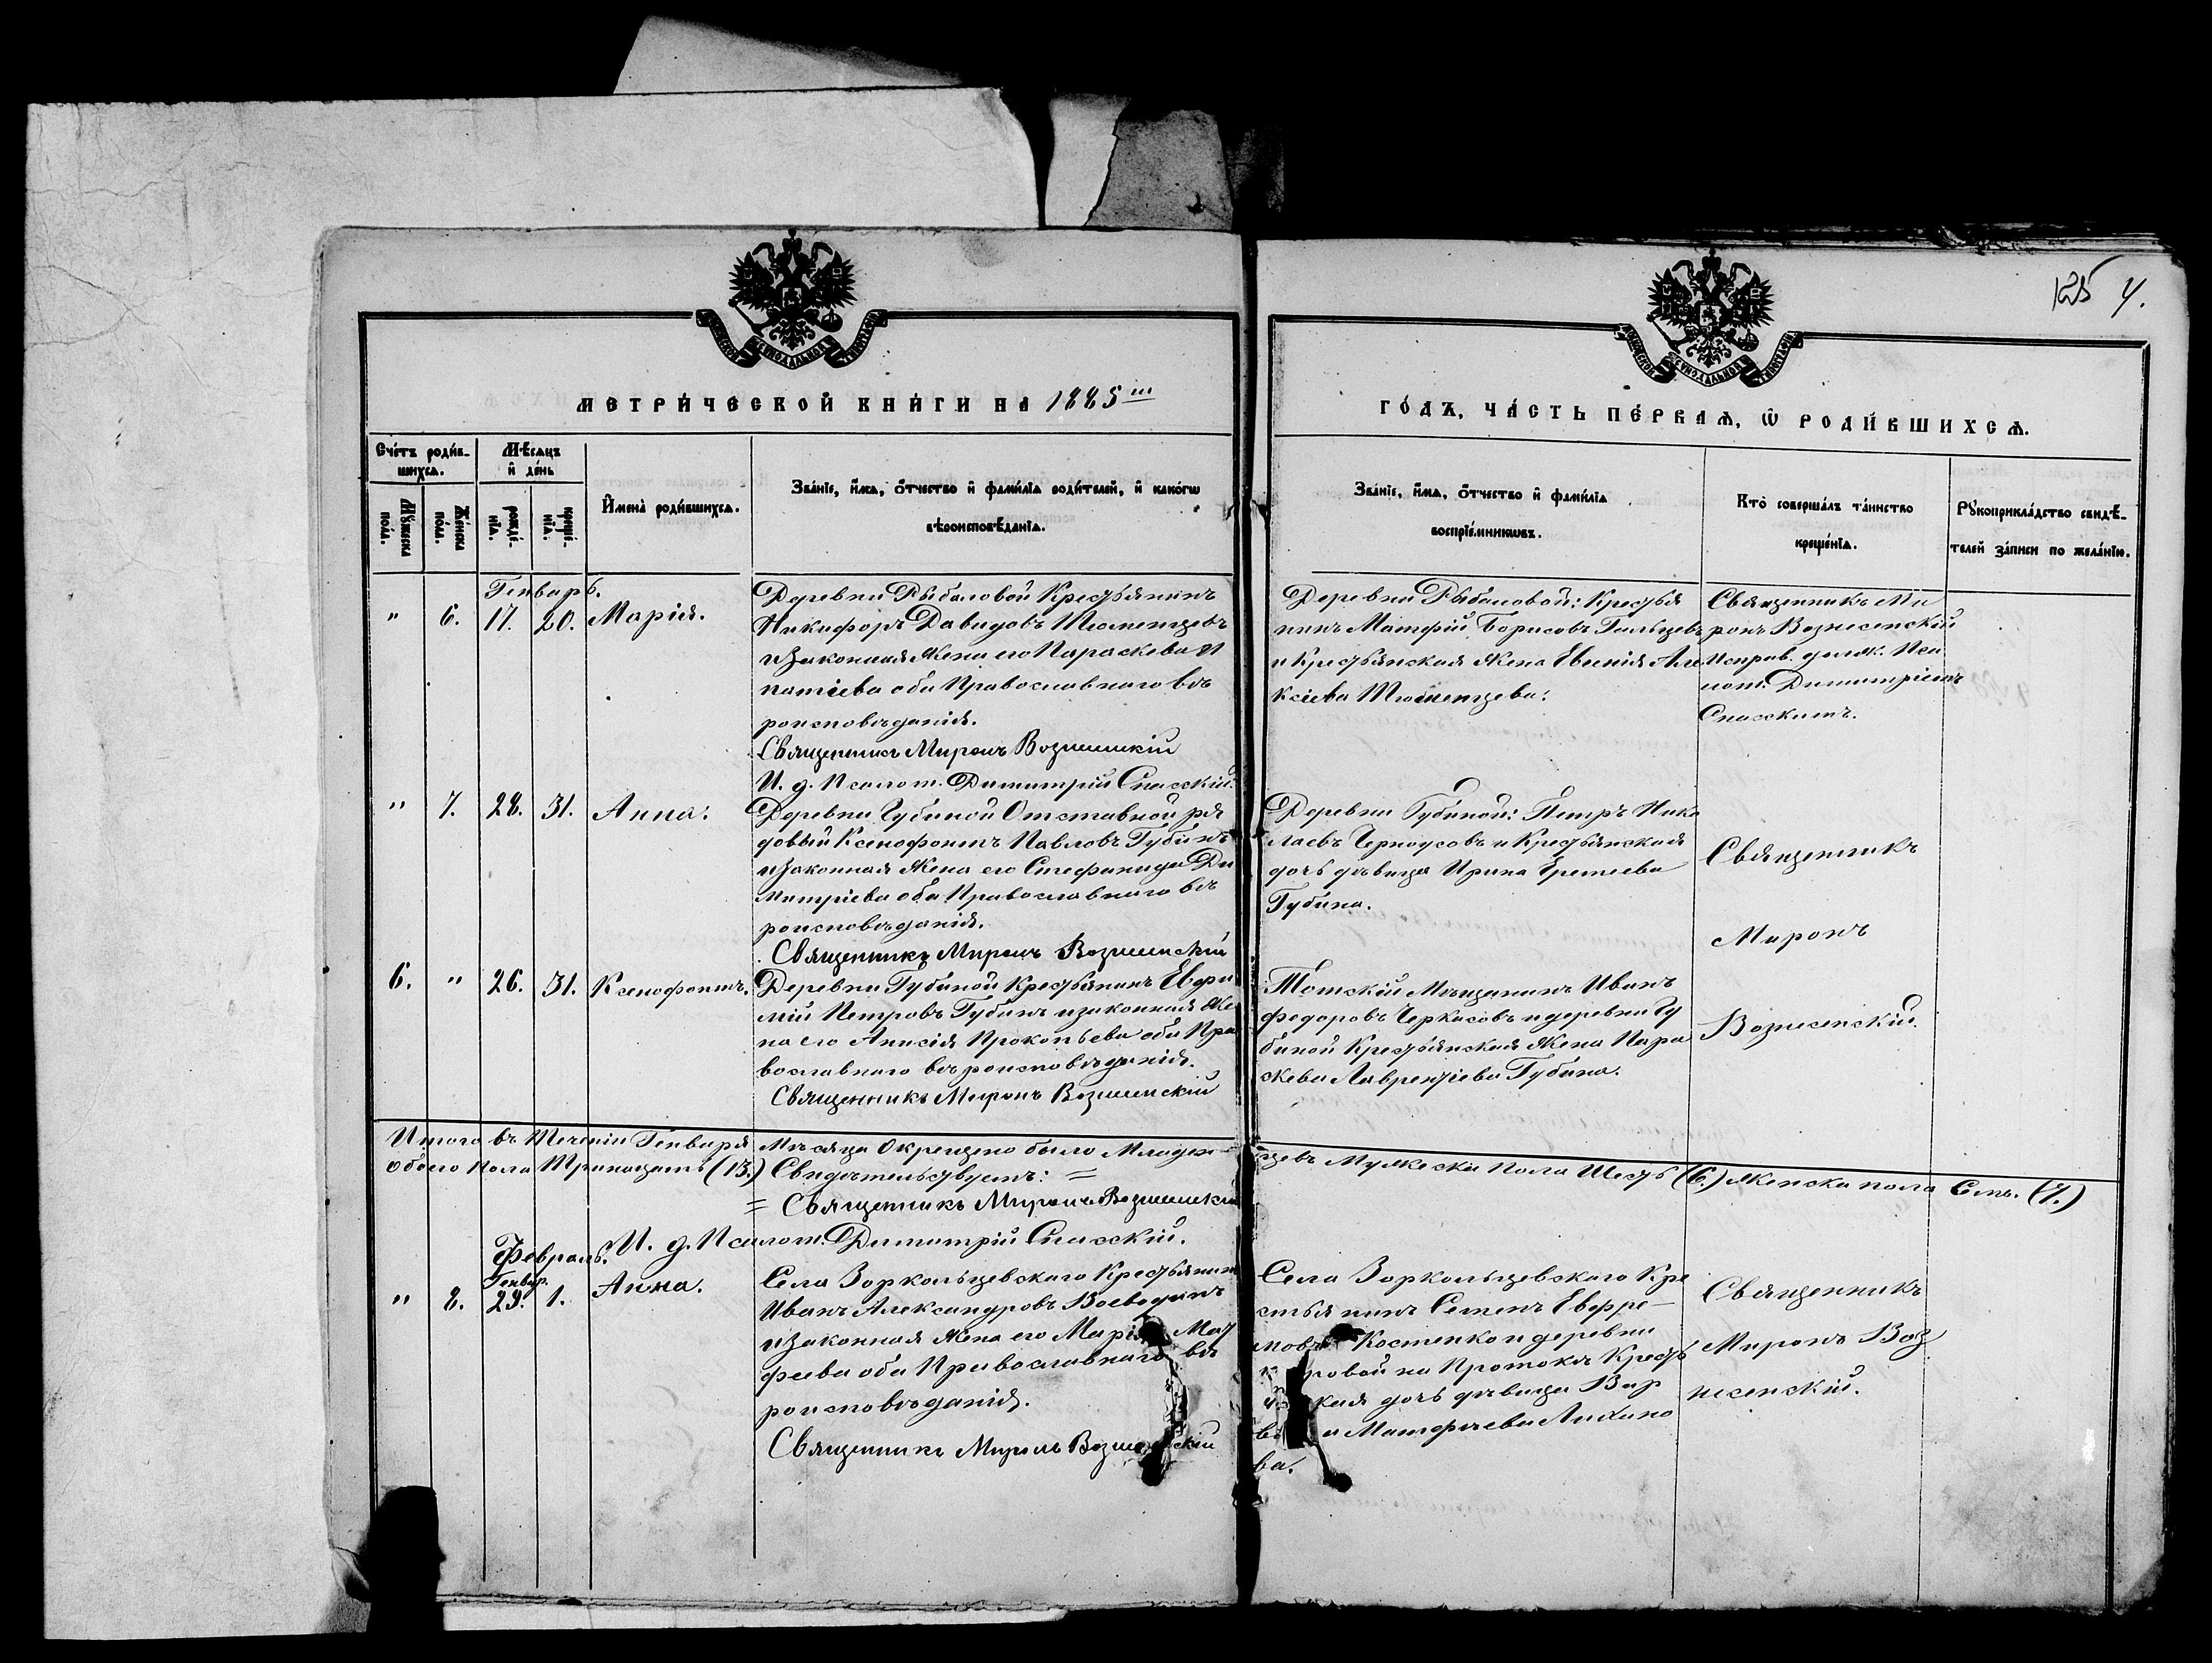 125 4.
МЕТРИ́ЧЕСКОЙ КНИ́ГИ НА 1885 ш
ГО́ДЪ, ЧА́СТЬ ПЕ́РВАѦ, Ѡ РОДИ́ВШИХСѦ.
Сче́тъ роди́в-
шихсѧ.
Мѣ́сѧцъ
и҆ де́нь
Мꙋ́жеска
по́ла.
Же́нска
по́ла.
рожде́-
нїѧ.
креще́-
нїѧ.
И҆мена̀ роди́вшихсѧ.
Зва́нїе, и҆́мѧ, ѻ҆́тчество и҆ фами́лїѧ роди́телей, и҆ како́гѡ
вѣроисповѣ́данїѧ.
Зва́нїе, и҆́мѧ, ѻ҆́тчество и҆ фами́лїѧ
воспрїе́мникѡвъ.
Кто̀ соверша́лъ та́инство
креще́нїѧ.
Рꙋкоприкла́дство свидѣ́-
телей за́писи по жела́нїю.
Генварь.
" 6. 17. 20. Марія.
Деревни Рыбаловой Крестьянинъ
Никифоръ Давидовъ Тюменцевъ
и Законная Жена его Параскева И
патіева оба Православнаго вѣ
роисповѣданія.
Священникъ Миронъ Вознесенскій
И. д. Псалом. Димитрій Спасскій.
Деревни Рыбаловой: Крестья
нинъ Матфій Борисовъ Гильцевъ
и Крестьянская Жена Евгенія Але
ксіева Тюменцева.
Священникъ Ми
ронъ Вознесенскій
Исправ. долж. Пса
лом. Димитріемъ
Спасскимъ.
" 7. 28. 31. Анна.
Деревни Губиной Отставной ря
довый Ксенофонтъ Павловъ Губинъ
и Законная Жена его Стефанида Ди
митріева оба Православнаго вѣ
роисповѣданія.
Священникъ Миронъ Вознесенскій
Деревни Губиной: Петръ Нико
лаевъ Черноусовъ и Крестьянская
дочь дѣвица Ирина
Губина.
Священникъ
Миронъ
Вознесенскій.
6. " 26. 31. Ксенофонтъ.
Деревни Губиной Крестьянинъ Евфи
мій Петровъ Губинъ и законная Же
на его Анисія Прокопьева оба Пра
вославнаго вѣроисповѣданія.
Священникъ Миронъ Вознесенскій
Томскій Мѣщанинъ Иванъ
Федоровъ Черкасовъ и деревни Гу
биной Крестьянская Жена Пара
скева Лаврентіева Губина.
Итого въ Теченіи Генваря Мѣсяца Окрещено было Младен-
цевъ Мужеска пола Шесть (6.) Женска пола Семь. (7.)
обоего пола Тринадцать (13.) Свидѣтельствуемъ: =
= Священникъ Миронъ Вознесенскій
И. д. Псалом. Димитрій Спасскій.
Февраль.
Генвар.
" 8. 29. 1. Анна.
Села Зоркольцевскаго Крестьянинъ
Иванъ Александровъ Воеводинъ
и Законная Жена его Марія Мат
феева оба Православнаго вѣ
роисповѣданія.
Священникъ Миронъ Вознесенскій
Села Зоркольцевскаго Кре
стьянинъ Семенъ Евфре-
мовъ Костенко и деревни
ровой на Протокѣ Кресть
кая дочь дѣвица Вар
ва а Матфѣева Лихано
ва.
Священникъ
Миронъ Воз
несенскій.